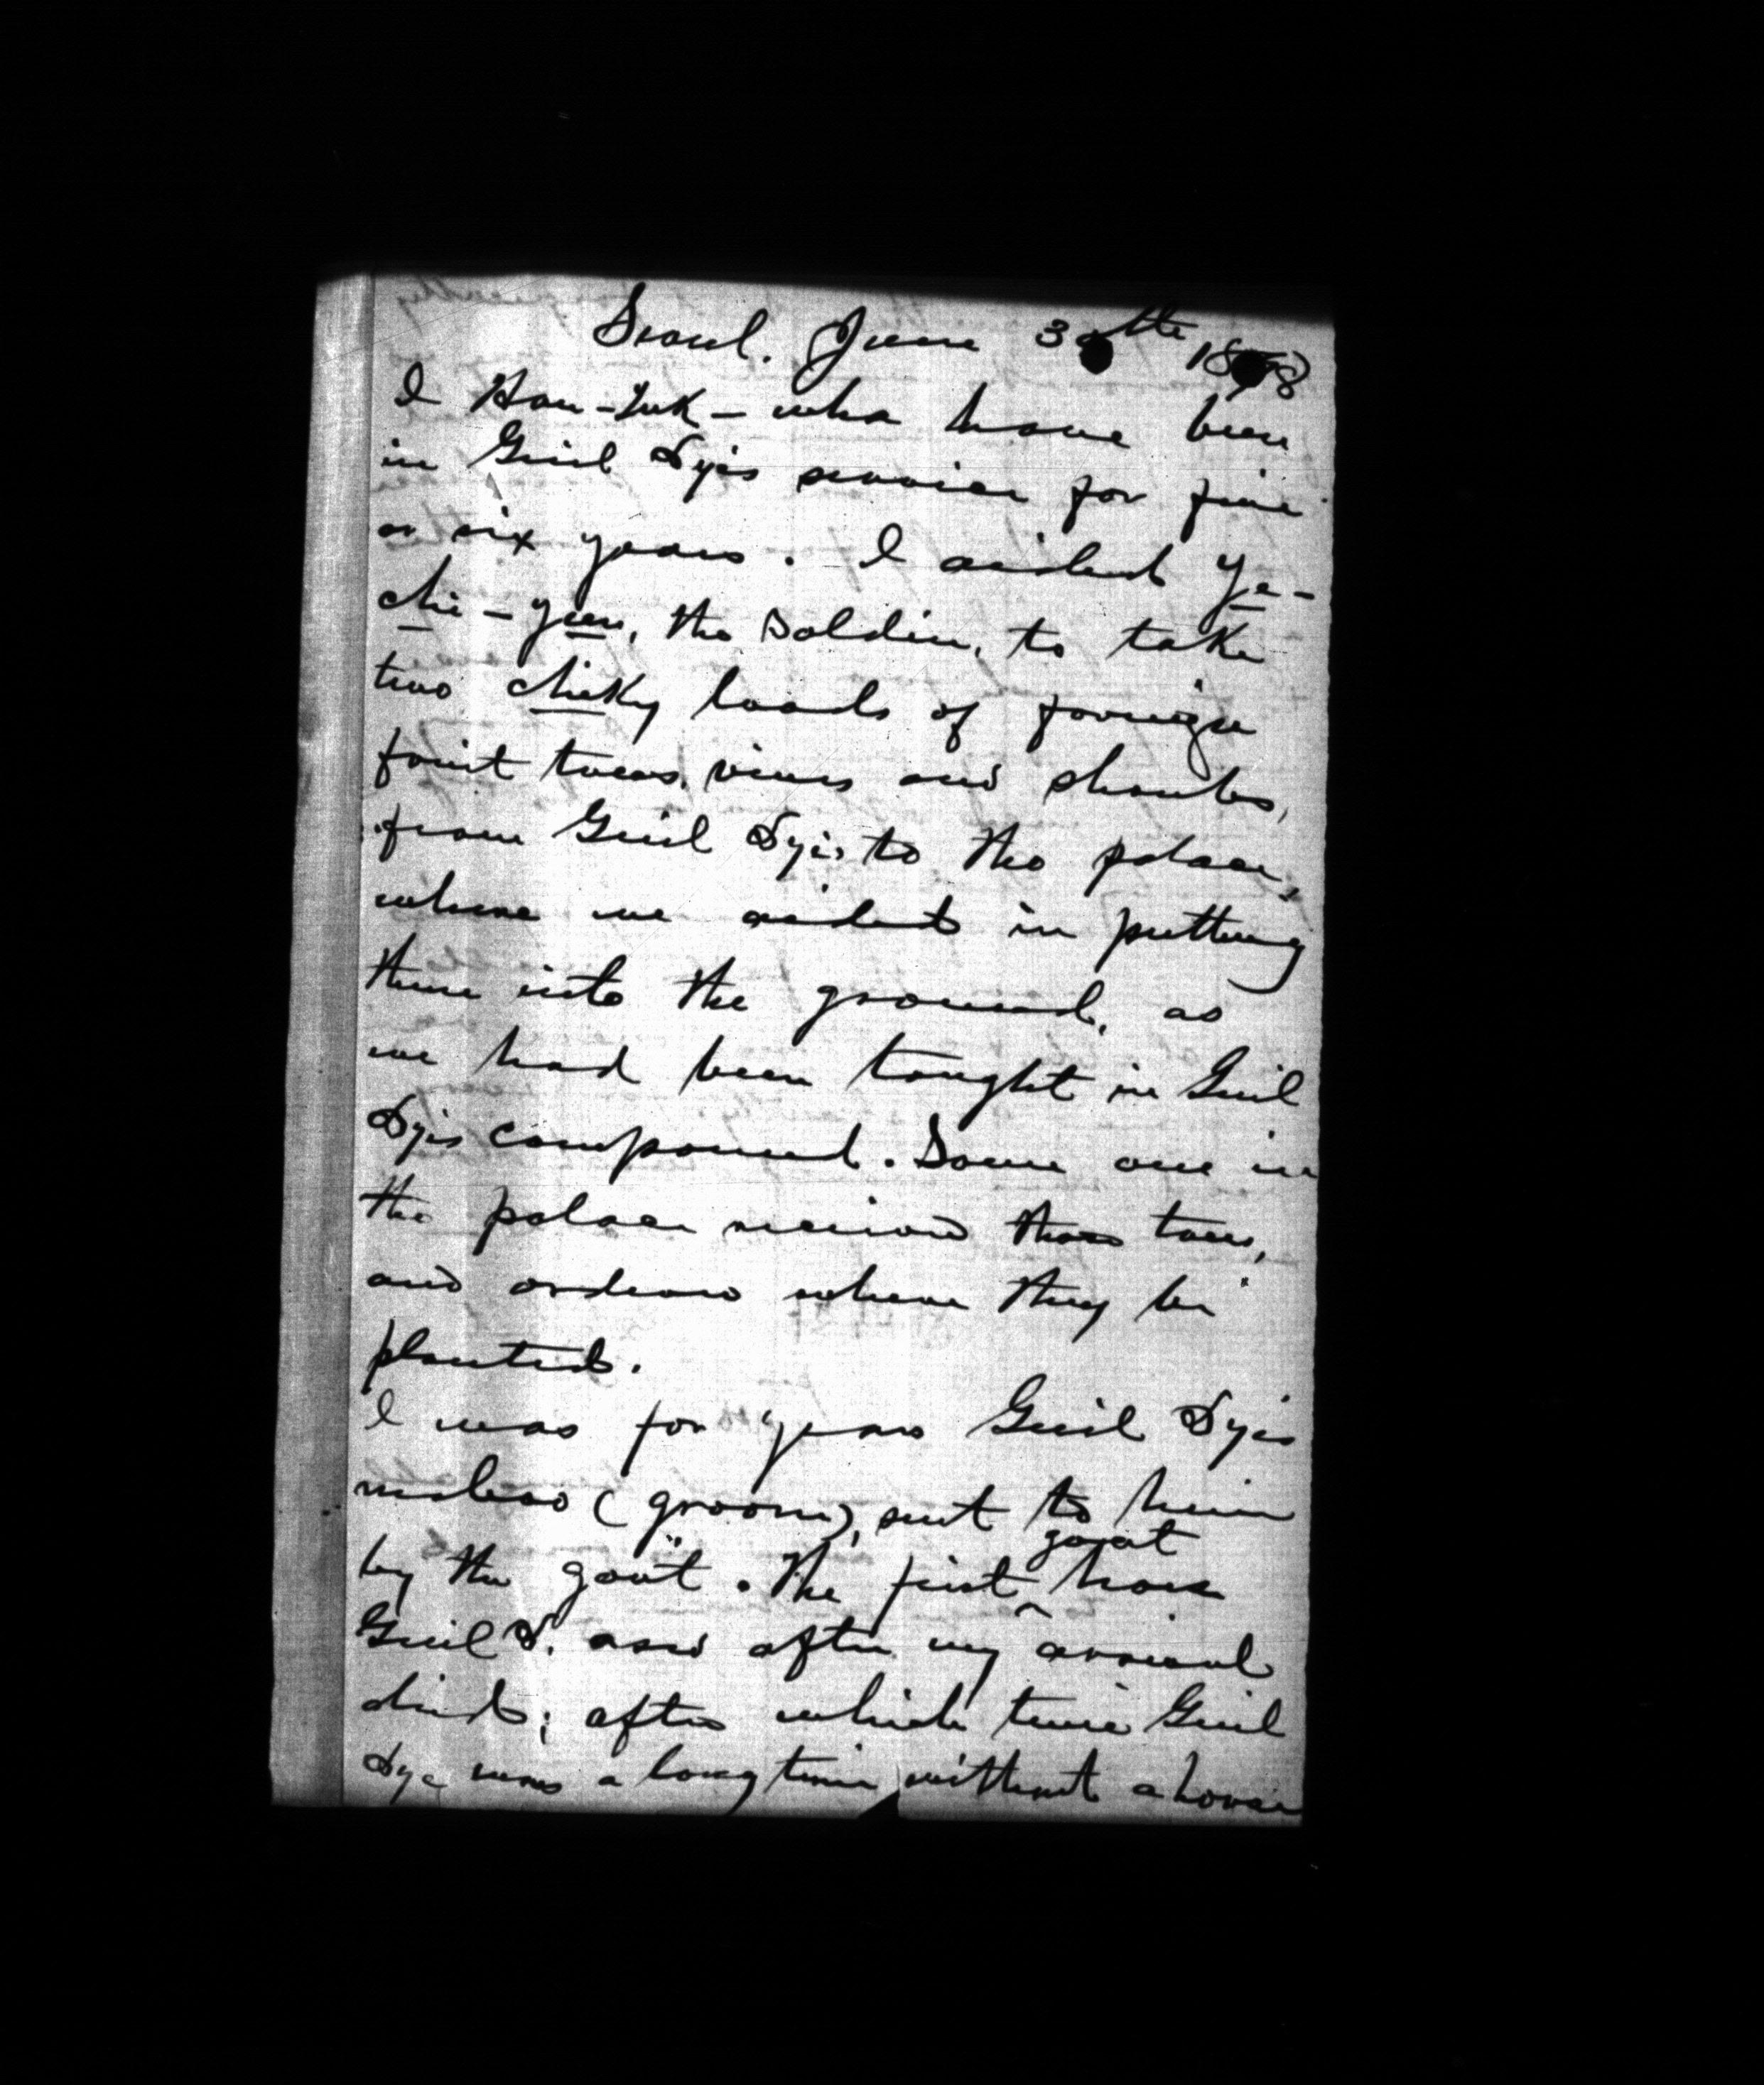 Seoul. June 30th 1898
I Han-Suk - who have been
in Genl Dye's service for five
or six years. I aided Ye-
che-yun, the soldier, to take
two chicky loads of foreign
fruit trees, vines and shrubs,
from Genl Dye's to the palace,
where we aided in putting
them into the ground, as
we had been tought in Genl
Dye's compound. Some one in
the palace received these trees,
and orders where they be
planted.
I was for years Genl Dye's
(groom), sent to him
by the govt. The first govt horse
Genl D. after my arrival
died; after which time Genl
Dye was a long time without a horse